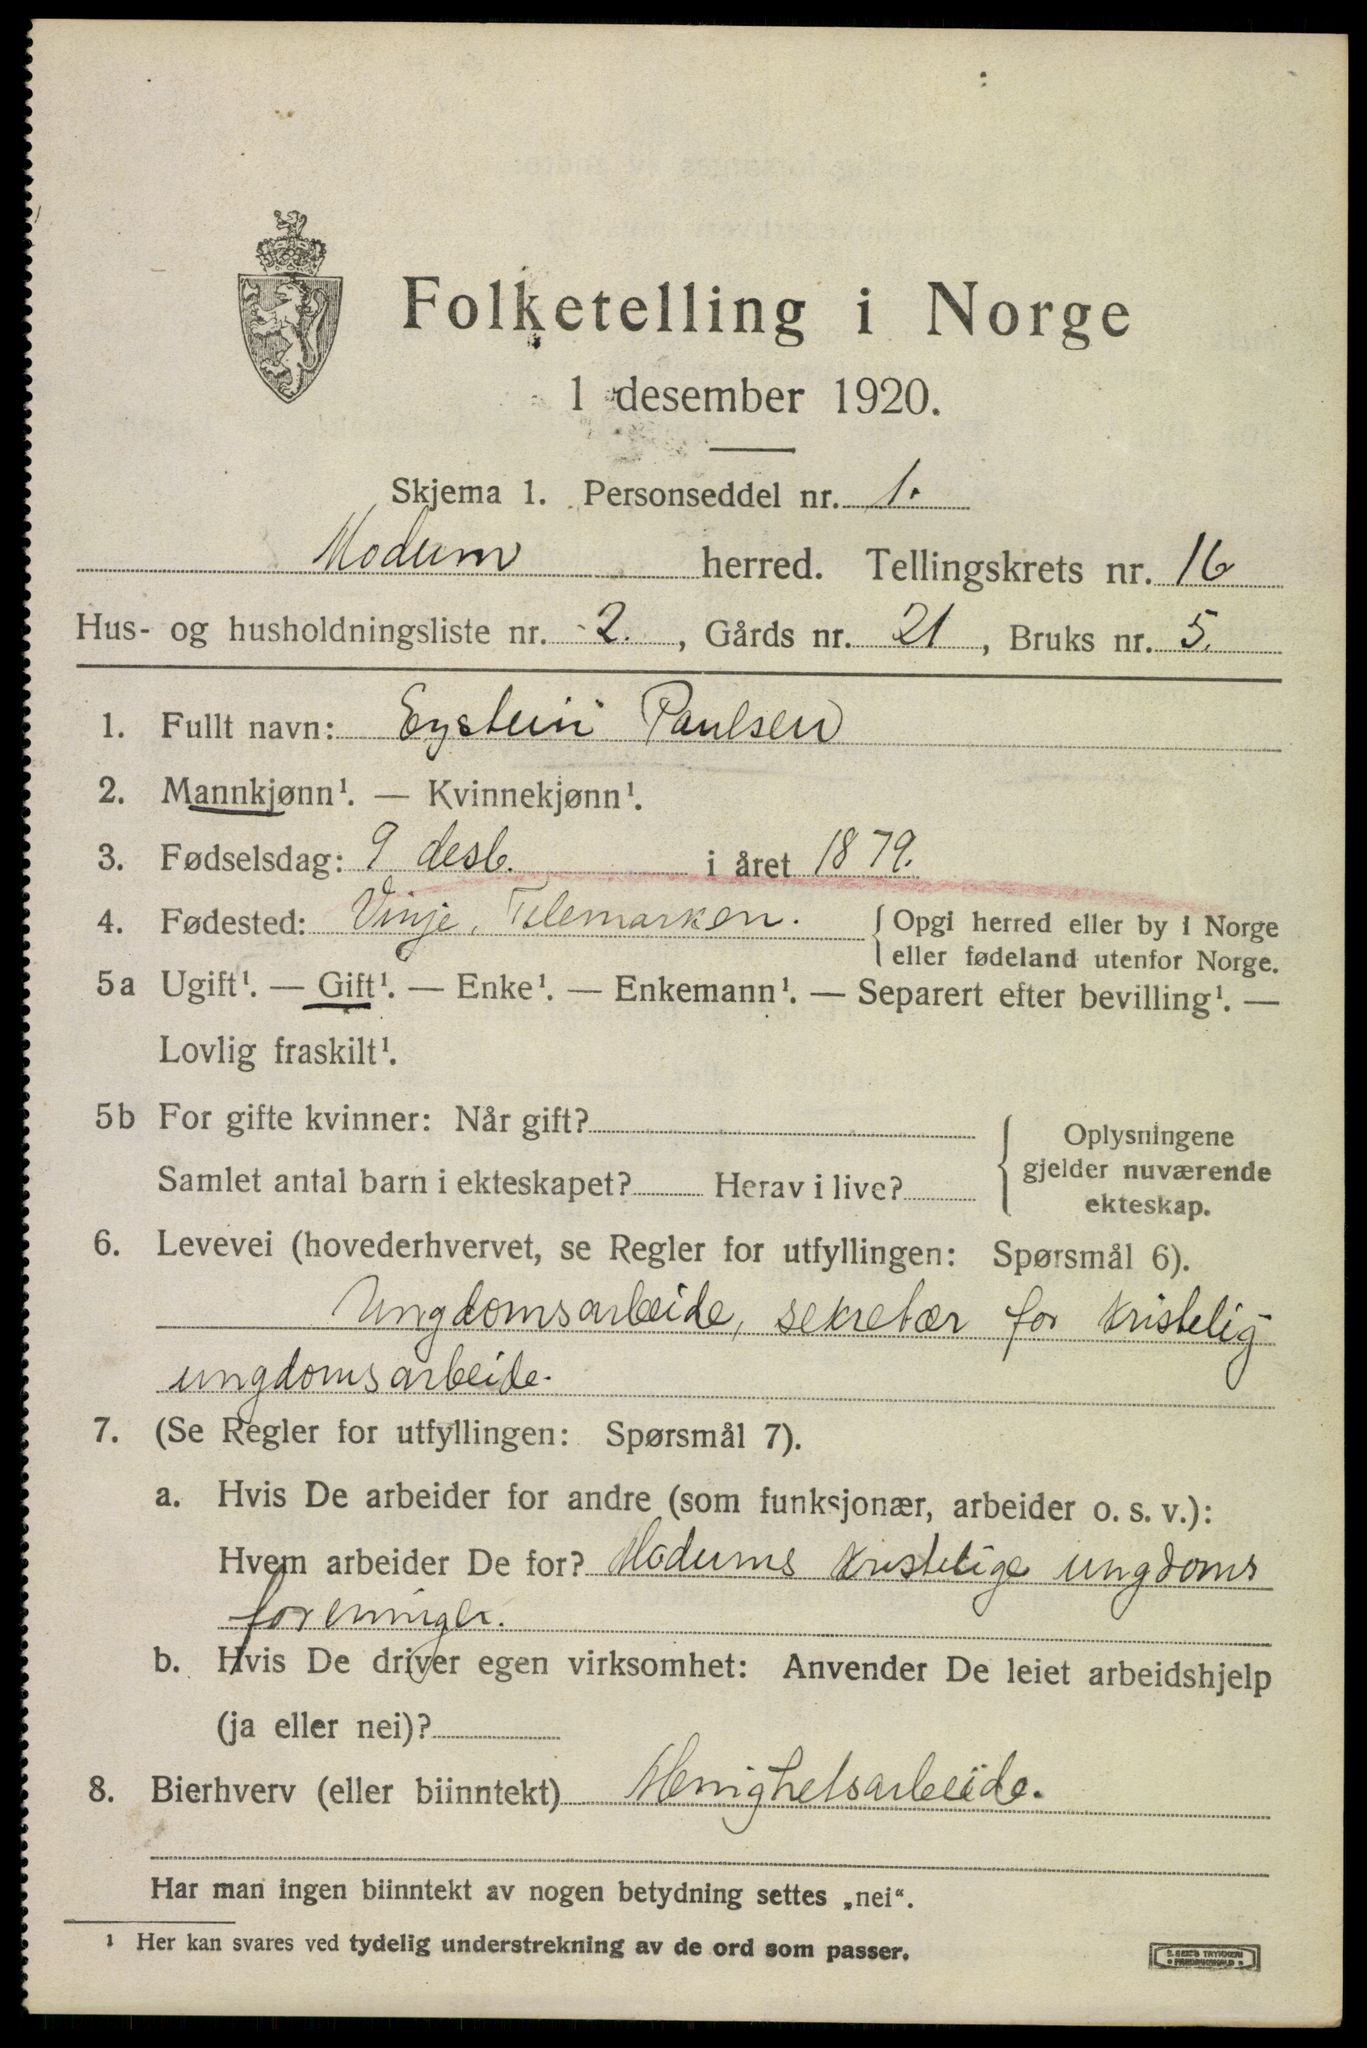 Folketelling i Norge
1 desember 1920.
Skjema 1. Personseddel nr. 1.
Modum herred. Tellingskrets nr. 16
Hus- og husholdningsliste nr. 2., Gårds nr. 21, Bruks nr. 5.
1. Fullt navn: Eystein Paulsen
2. Mannkjønn¹. — Kvinnekjønn¹.
3. Fødselsdag: 9 desb. i året 1879.
4. Fødested: Vinje, Telemarken. { Opgi herred eller by i Norge
eller fødeland utenfor Norge.
5a Ugift¹. — Gift¹. — Enke¹. — Enkemann¹. — Separert efter bevilling¹. —
Lovlig fraskilt¹.
5b For gifte kvinner: Når gift?
Samlet antal barn i ekteskapet? Herav i live?
Oplysningene
gjelder nuværende
ekteskap.
6. Levevei (hovederhvervet, se Regler for utfyllingen: Spørsmål 6).
Ungdomsarbeide, sekretær for kristelig
ungdomsarbeide.
7. (Se Regler for utfyllingen: Spørsmål 7).
a. Hvis De arbeider for andre (som funksjonær, arbeider o. s. v.):
Hvem arbeider De for? Modums kristelige ungdoms
foreninger.
b. Hvis De driver egen virksomhet: Anvender De leiet arbeidshjelp
(ja eller nei)?
8. Bierhverv (eller biinntekt) Menighetsarbeide.
Har man ingen biinntekt av nogen betydning settes „nei“.
¹ Her kan svares ved tydelig understrekning av de ord som passer.